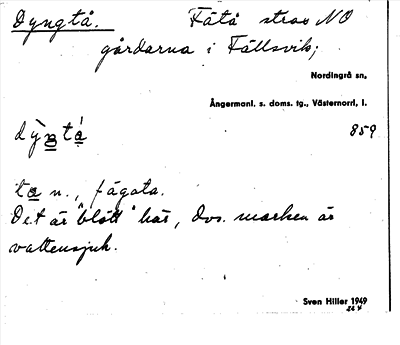 Dyngtå. Fätå strax NO
gårdarna i Fällsvik;
Nordingrå sn,
Ångermanl. s. doms. tg., Västernorrl. l.
859
ta n., fägata.
Det är "blött" här, dvs. marken är
vattensjuk.
Sven Hiller 1949